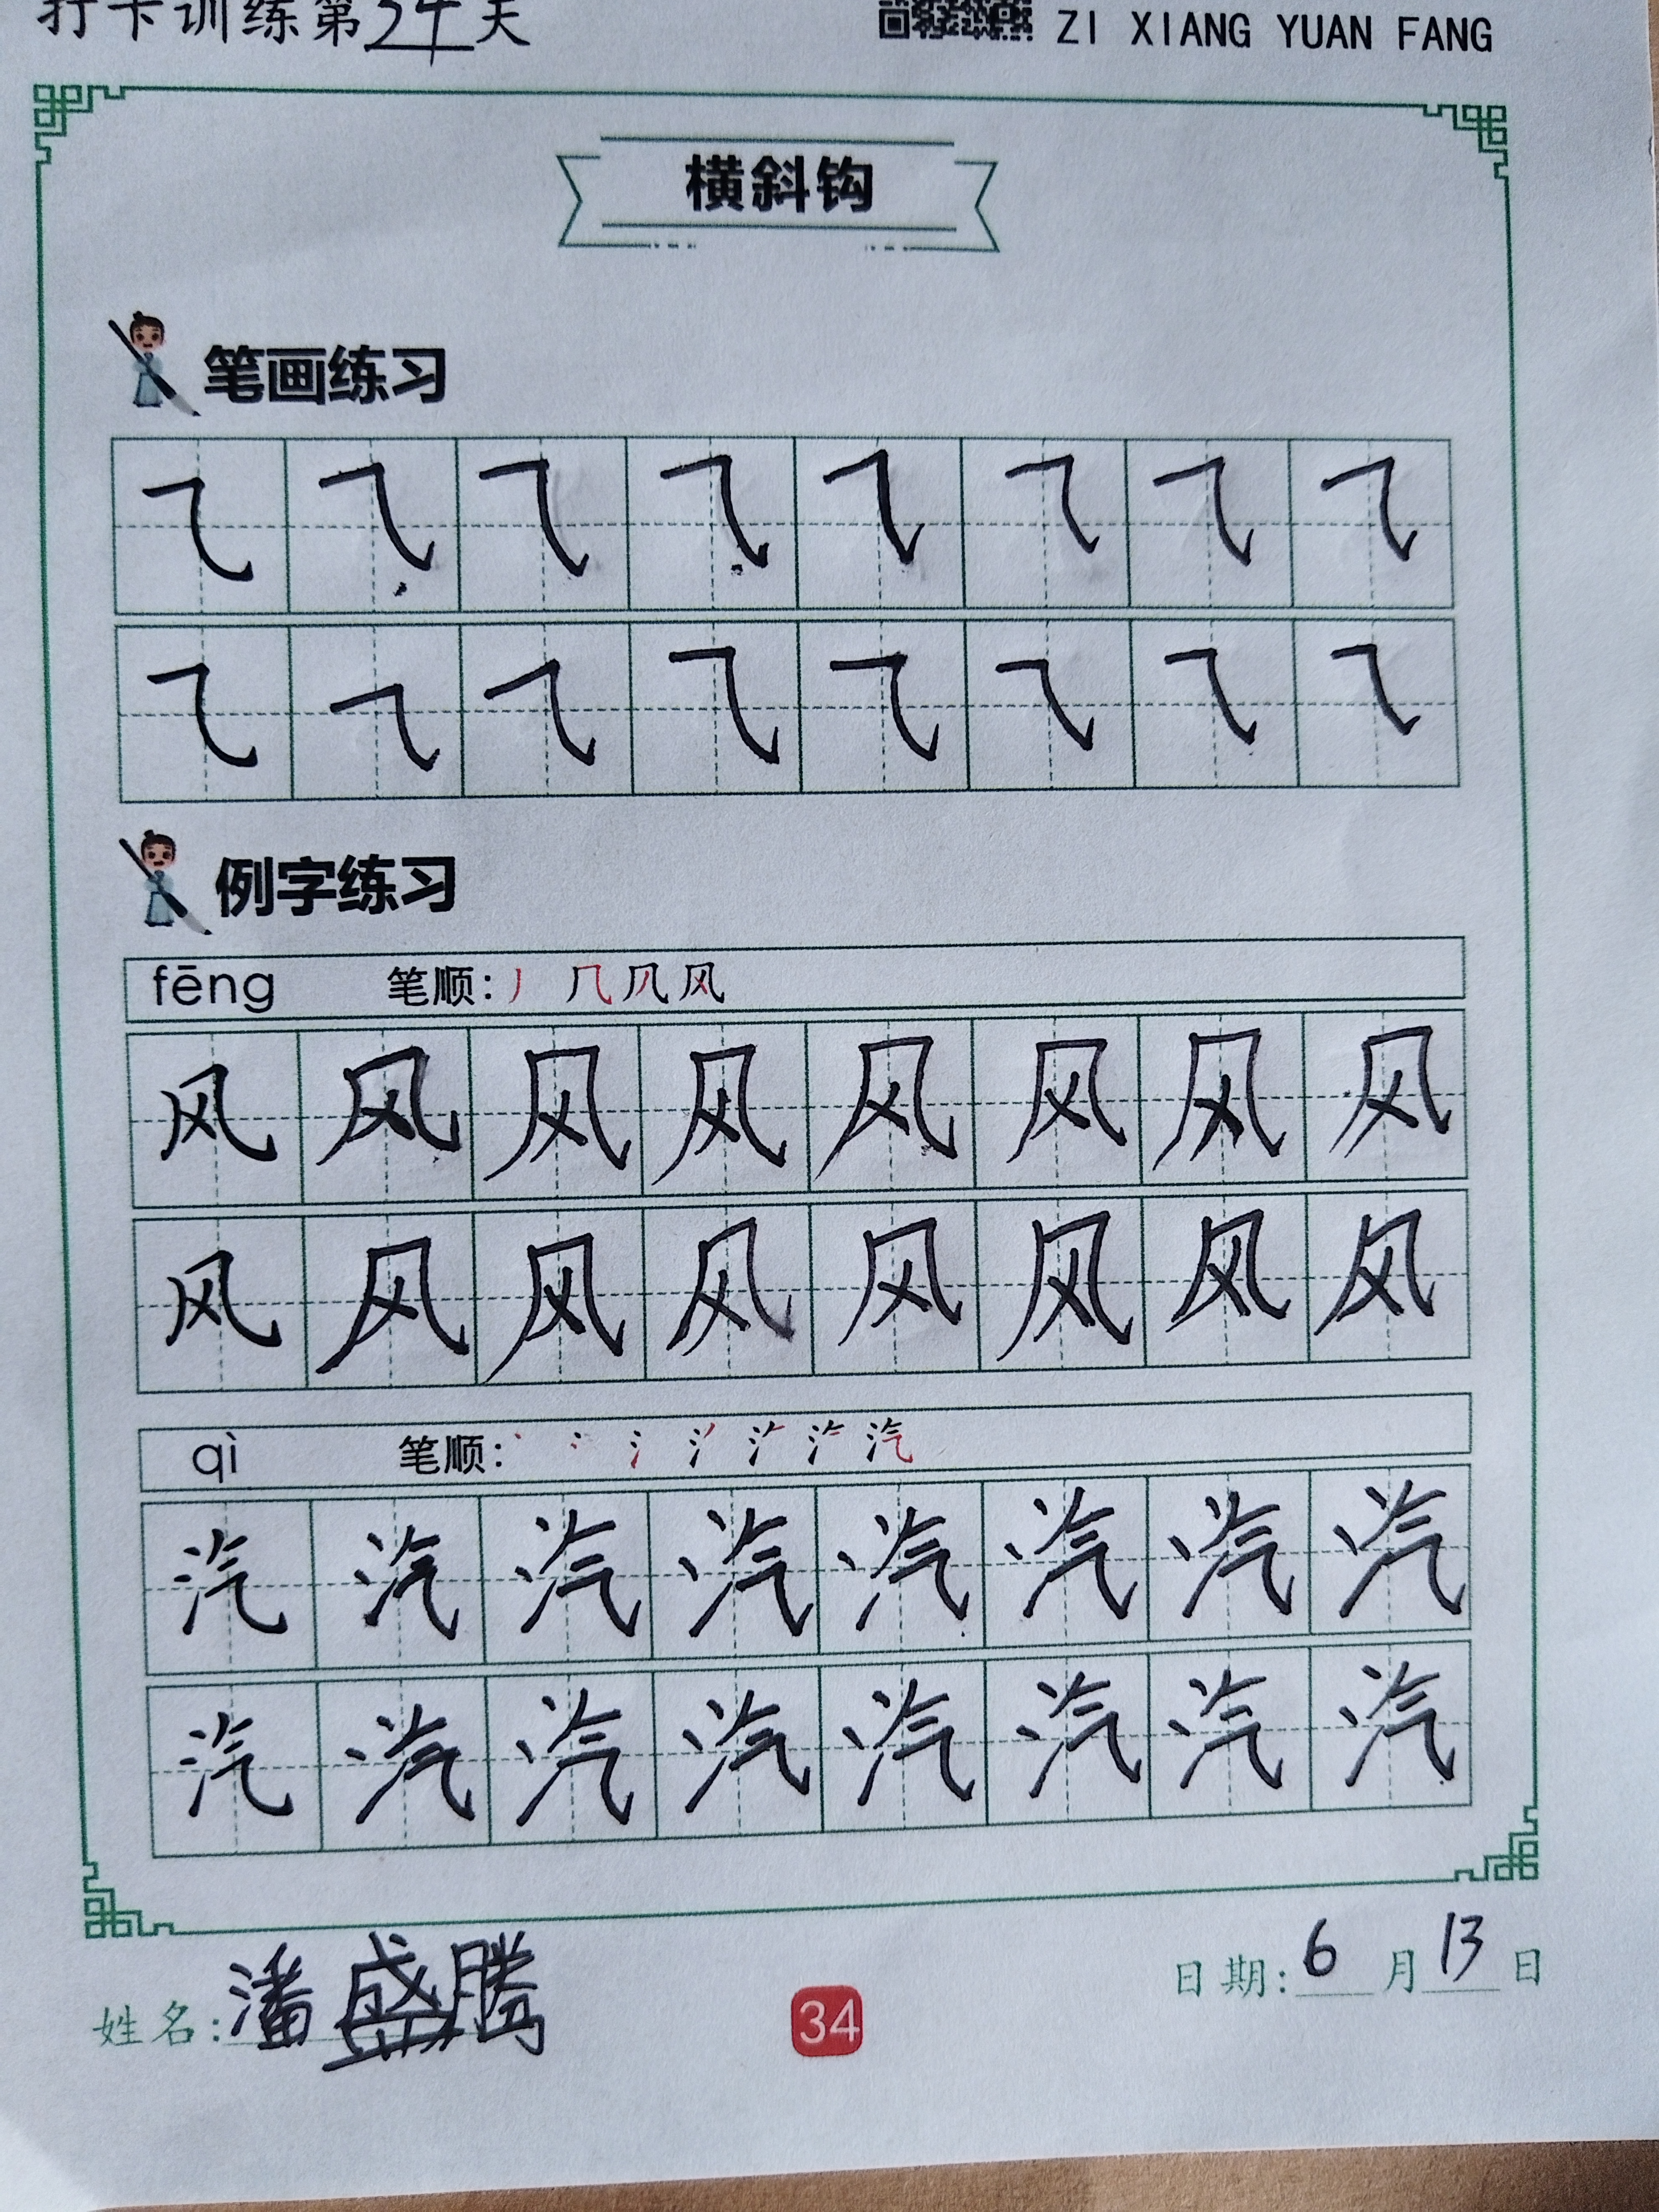 打卡训练第24天
ZI XIANG YUAN FANG
横斜钩
笔画练习
㇈ ㇈ ㇈ ㇈ ㇈ ㇈ ㇈ ㇈
㇈ ㇈ ㇈ ㇈ ㇈ ㇈ ㇈ ㇈
例字练习
fēng 笔顺: 丿 几 风
风 风 风 风 风 风 风 风
风 风 风 风 风 风 风 风
qì 笔顺: 汽
汽 汽 汽 汽 汽 汽 汽 汽
汽 汽 汽 汽 汽 汽 汽 汽
姓名: 潘盛腾
34
日期: 6 月 13 日